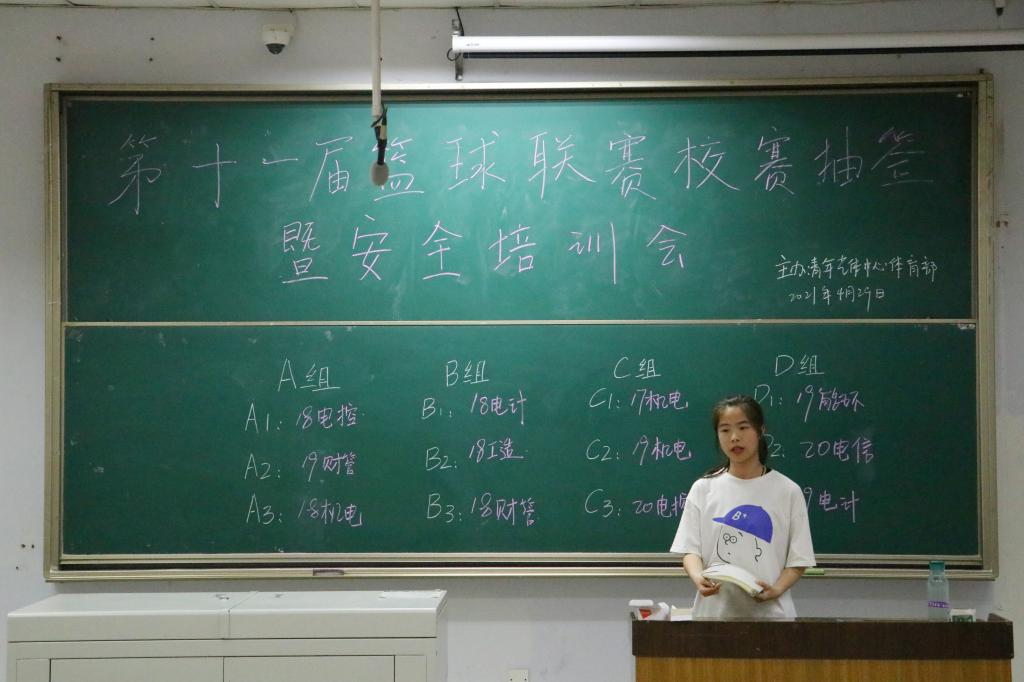 第十一届篮球联赛校赛抽签
暨安全培训会
主办:青年艺体中心体育部
2021年4月29日
A组 B组 C组 D组
A1:18电控 B1:18电计 C1:17机电 D1:19能环
A2:19财管 B2:18工造 C2:19机电 2:20电信
A3:18机电 B3:18财管 C3:20电 9电计
B